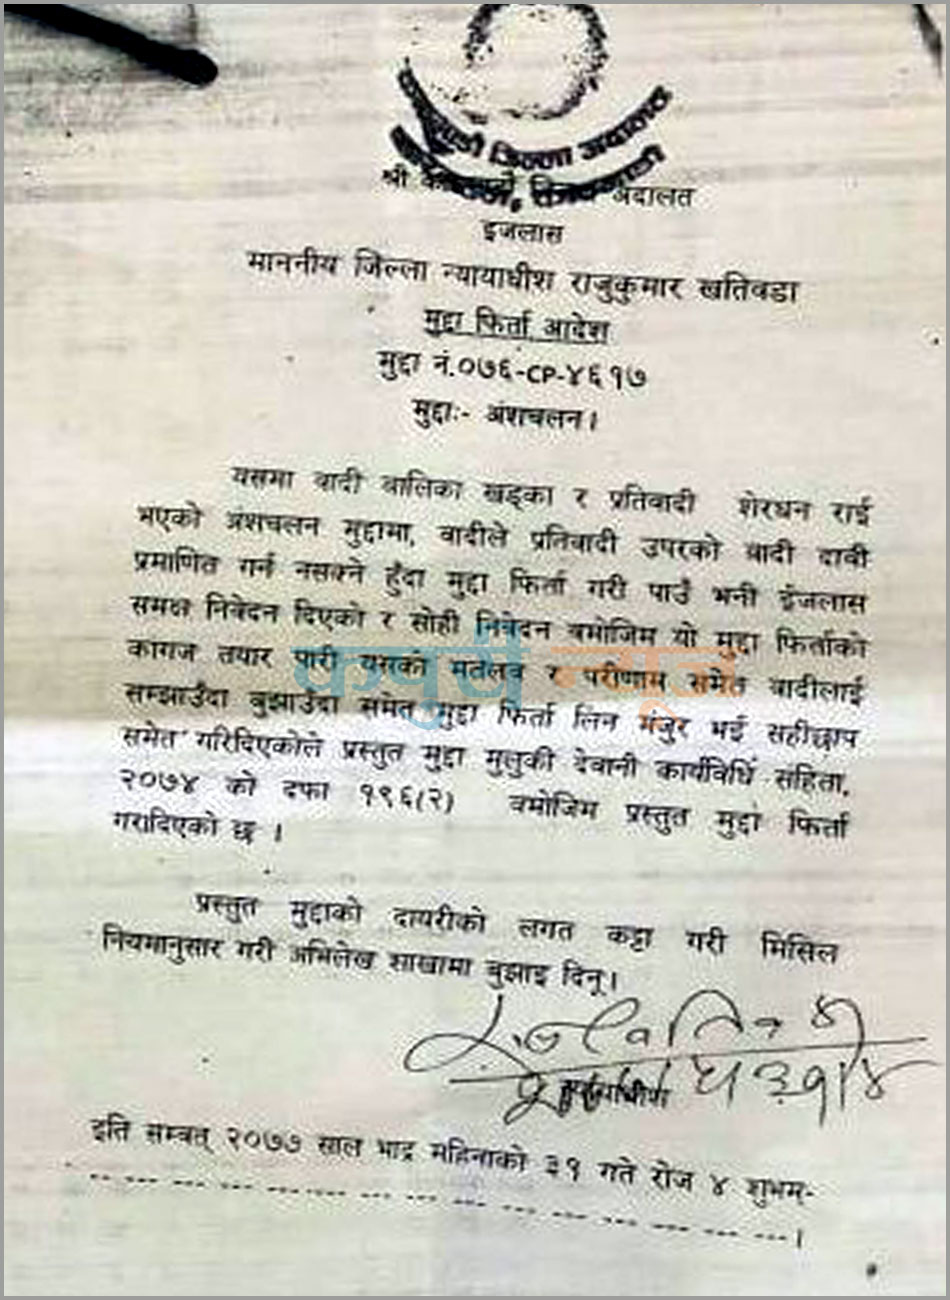 जिल्ला अदालत
श्री अदालत
इजलास
माननीय जिल्ला न्यायाधीश राजुकुमार खतिवडा
मुद्दा फिर्ता आदेश
मुद्दा नं.०७६-CP-४६१७
मुद्दाः- अंशचलन।
यसमा वादी वालिका खड्का र प्रतिवादी शेरधन राई
भएको अंशचलन मुद्दामा, वादीले प्रतिवादी उपरको वादी दावी
प्रमाणित गर्न नसक्ने हुँदा मुद्दा फिर्ता गरी पाउँ भनी ईजलास
समक्ष निवेदन दिएको र सोही निवेदन वमोजिम यो मुद्दा फिर्ताको
कागज तयार पारी यसको मतलव र परीणाम समेत वादीलाई
कपुरी न्यूज
सम्झाउँदा बुझाउँदा समेत मुद्दा फिर्ता लिन मंजुर भई सहीछाप
समेत गरिदिएकोले प्रस्तुत मुद्दा मुलुकी देवानी कार्यविधि संहिता,
२०७४ को दफा १९६(२) वमोजिम प्रस्तुत मुद्दा फिर्ता
गरादिएको छ ।
प्रस्तुत मुद्दाको दायरीको लगत कट्टा गरी मिसिल
नियमानुसार गरी अभिलेख शाखामा बुझाइ दिनू।
इति सम्वत् २०७७ साल भाद्र महिनाको ३१ गते रोज ४ शुभम्-
---------------।